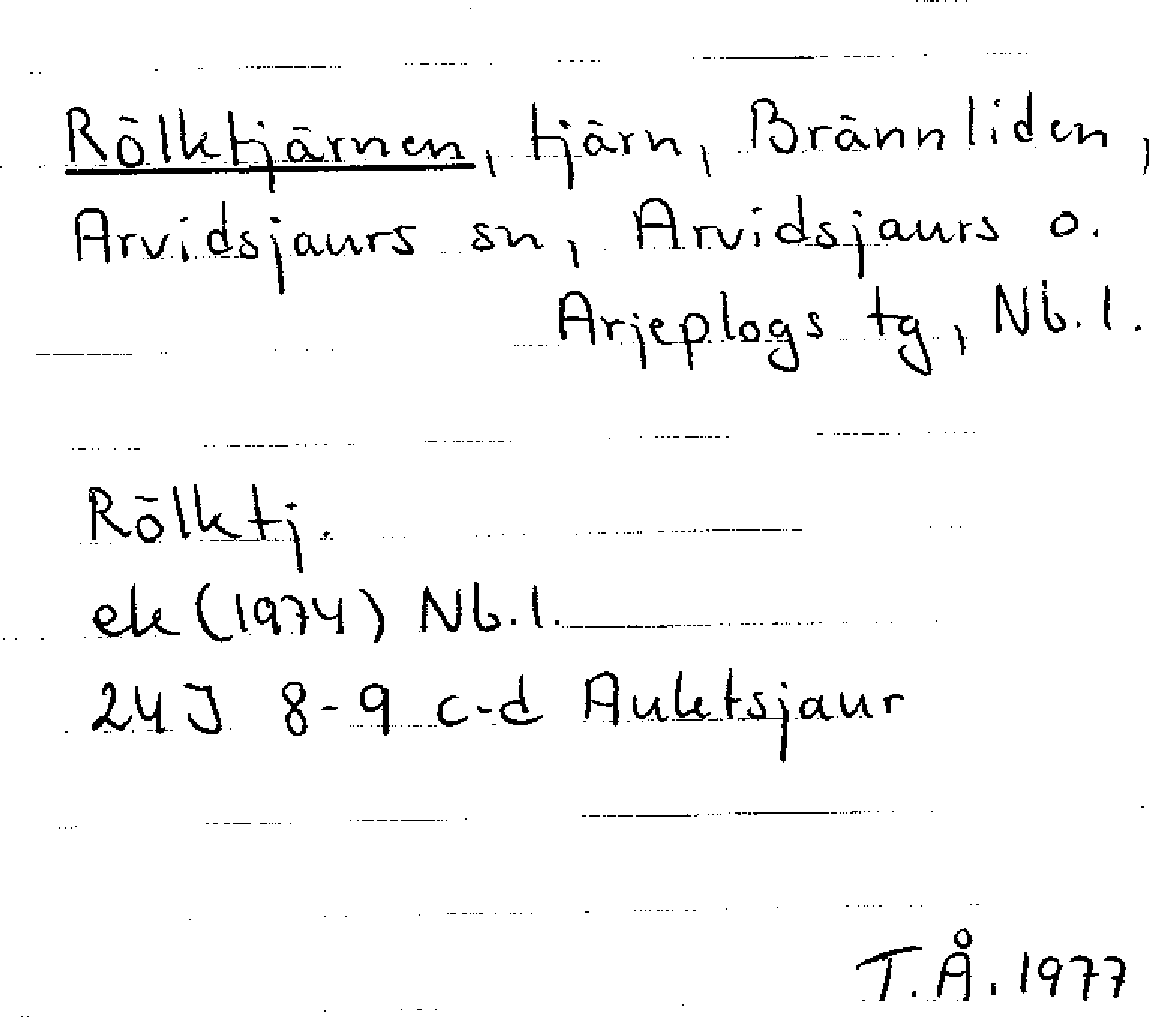 Rölktjärnen, tjärn, Brännliden,
Arvidsjaurs sn, Arvidsjaurs o.
Arjeplogs tg, Nb.l.
Rölktj.
ek (1974) Nb.l.
24J 8-9 c-d Auktsjaur
T.Å. 1977